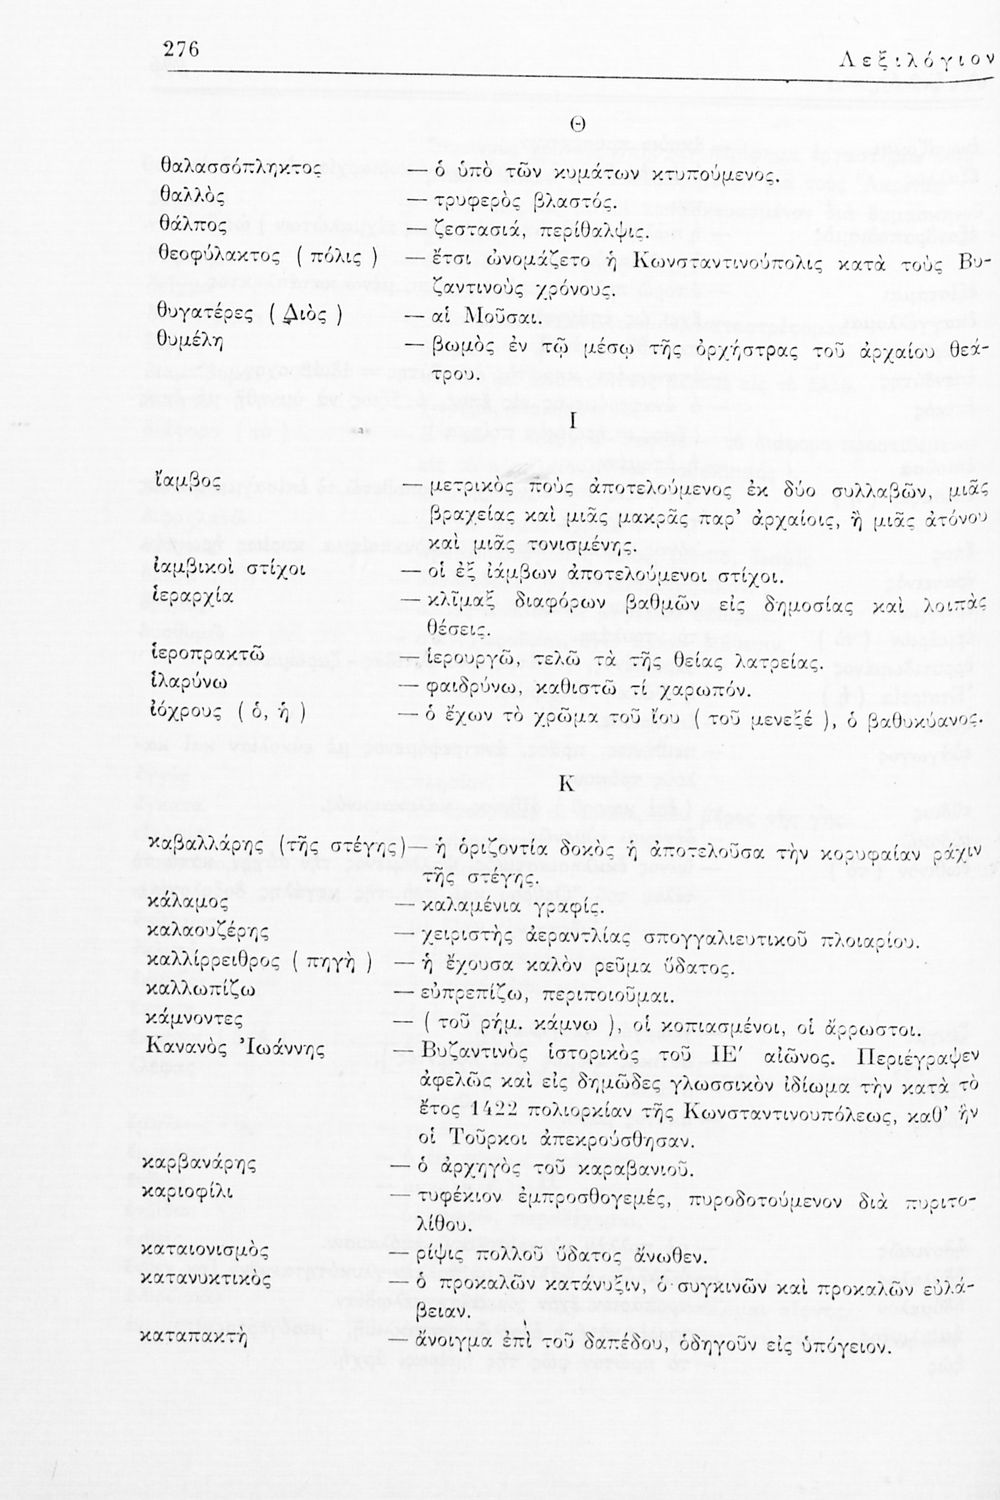 276 Λεξιλόγιον
Θ
θαλασσόπληκτος — ὁ ὑπὸ τῶν κυμάτων κτυπούμενος.
θαλλὸς — τρυφερὸς βλαστός.
θάλπος — ζεστασιά, περίθαλψις.
θεοφύλακτος ( πόλις ) — ἔτσι ὠνομάζετο ἡ Κωνσταντινούπολις κατὰ τοὺς Βυ-
ζαντινοὺς χρόνους.
θυγατέρες ( Διὸς ) — αἱ Μοῦσαι.
θυμέλη — βωμὸς ἐν τῷ μέσῳ τῆς ὀρχήστρας τοῦ ἀρχαίου θεά-
τρου.
Ι
ἴαμβος — μετρικὸς ποὺς ἀποτελούμενος ἐκ δύο συλλαβῶν, μιᾶς
βραχείας καὶ μιᾶς μακρᾶς παρ’ ἀρχαίοις, ἢ μιᾶς ἀτόνου
καὶ μιᾶς τονισμένης.
ἰαμβικοὶ στίχοι — οἱ ἐξ ἰάμβων ἀποτελούμενοι στίχοι.
ἱεραρχία — κλῖμαξ διαφόρων βαθμῶν εἰς δημοσίας καὶ λοιπὰς
θέσεις.
ἱεροπρακτῶ — ἱερουργῶ, τελῶ τὰ τῆς θείας λατρείας.
ἱλαρύνω — φαιδρύνω, καθιστῶ τί χαρωπόν.
ἰόχρους ( ὁ, ἡ ) — ὁ ἔχων τὸ χρῶμα τοῦ ἴου ( τοῦ μενεξέ ), ὁ βαθυκύανος.
Κ
καβαλλάρης (τῆς στέγης) — ἡ ὁριζοντία δοκὸς ἡ ἀποτελοῦσα τὴν κορυφαίαν ράχιν
τῆς στέγης.
κάλαμος — καλαμένια γραφίς.
καλαουζέρης — χειριστὴς ἀεραντλίας σπογγαλιευτικοῦ πλοιαρίου.
καλλίρρειθρος ( πηγὴ ) — ἡ ἔχουσα καλὸν ρεῦμα ὕδατος.
καλλωπίζω — εὐπρεπίζω, περιποιοῦμαι.
κάμνοντες — ( τοῦ ρήμ. κάμνω ), οἱ κοπιασμένοι, οἱ ἄρρωστοι.
Κανανὸς Ἰωάννης — Βυζαντινὸς ἱστορικὸς τοῦ ΙΕ′ αἰῶνος. Περιέγραψεν
ἀφελῶς καὶ εἰς δημῶδες γλωσσικὸν ἰδίωμα τὴν κατὰ τὸ
ἔτος 1422 πολιορκίαν τῆς Κωνσταντινουπόλεως, καθ’ ἣν
οἱ Τοῦρκοι ἀπεκρούσθησαν.
καρβανάρης — ὁ ἀρχηγὸς τοῦ καραβανιοῦ.
καριοφίλι — τυφέκιον ἐμπροσθογεμές, πυροδοτούμενον διὰ πυριτο-
λίθου.
καταιονισμὸς — ρίψις πολλοῦ ὕδατος ἄνωθεν.
κατανυκτικὸς — ὁ προκαλῶν κατάνυξιν, ὁ συγκινῶν καὶ προκαλῶν εὐλά-
βειαν.
καταπακτὴ — ἄνοιγμα ἐπὶ τοῦ δαπέδου, ὁδηγοῦν εἰς ὑπόγειον.